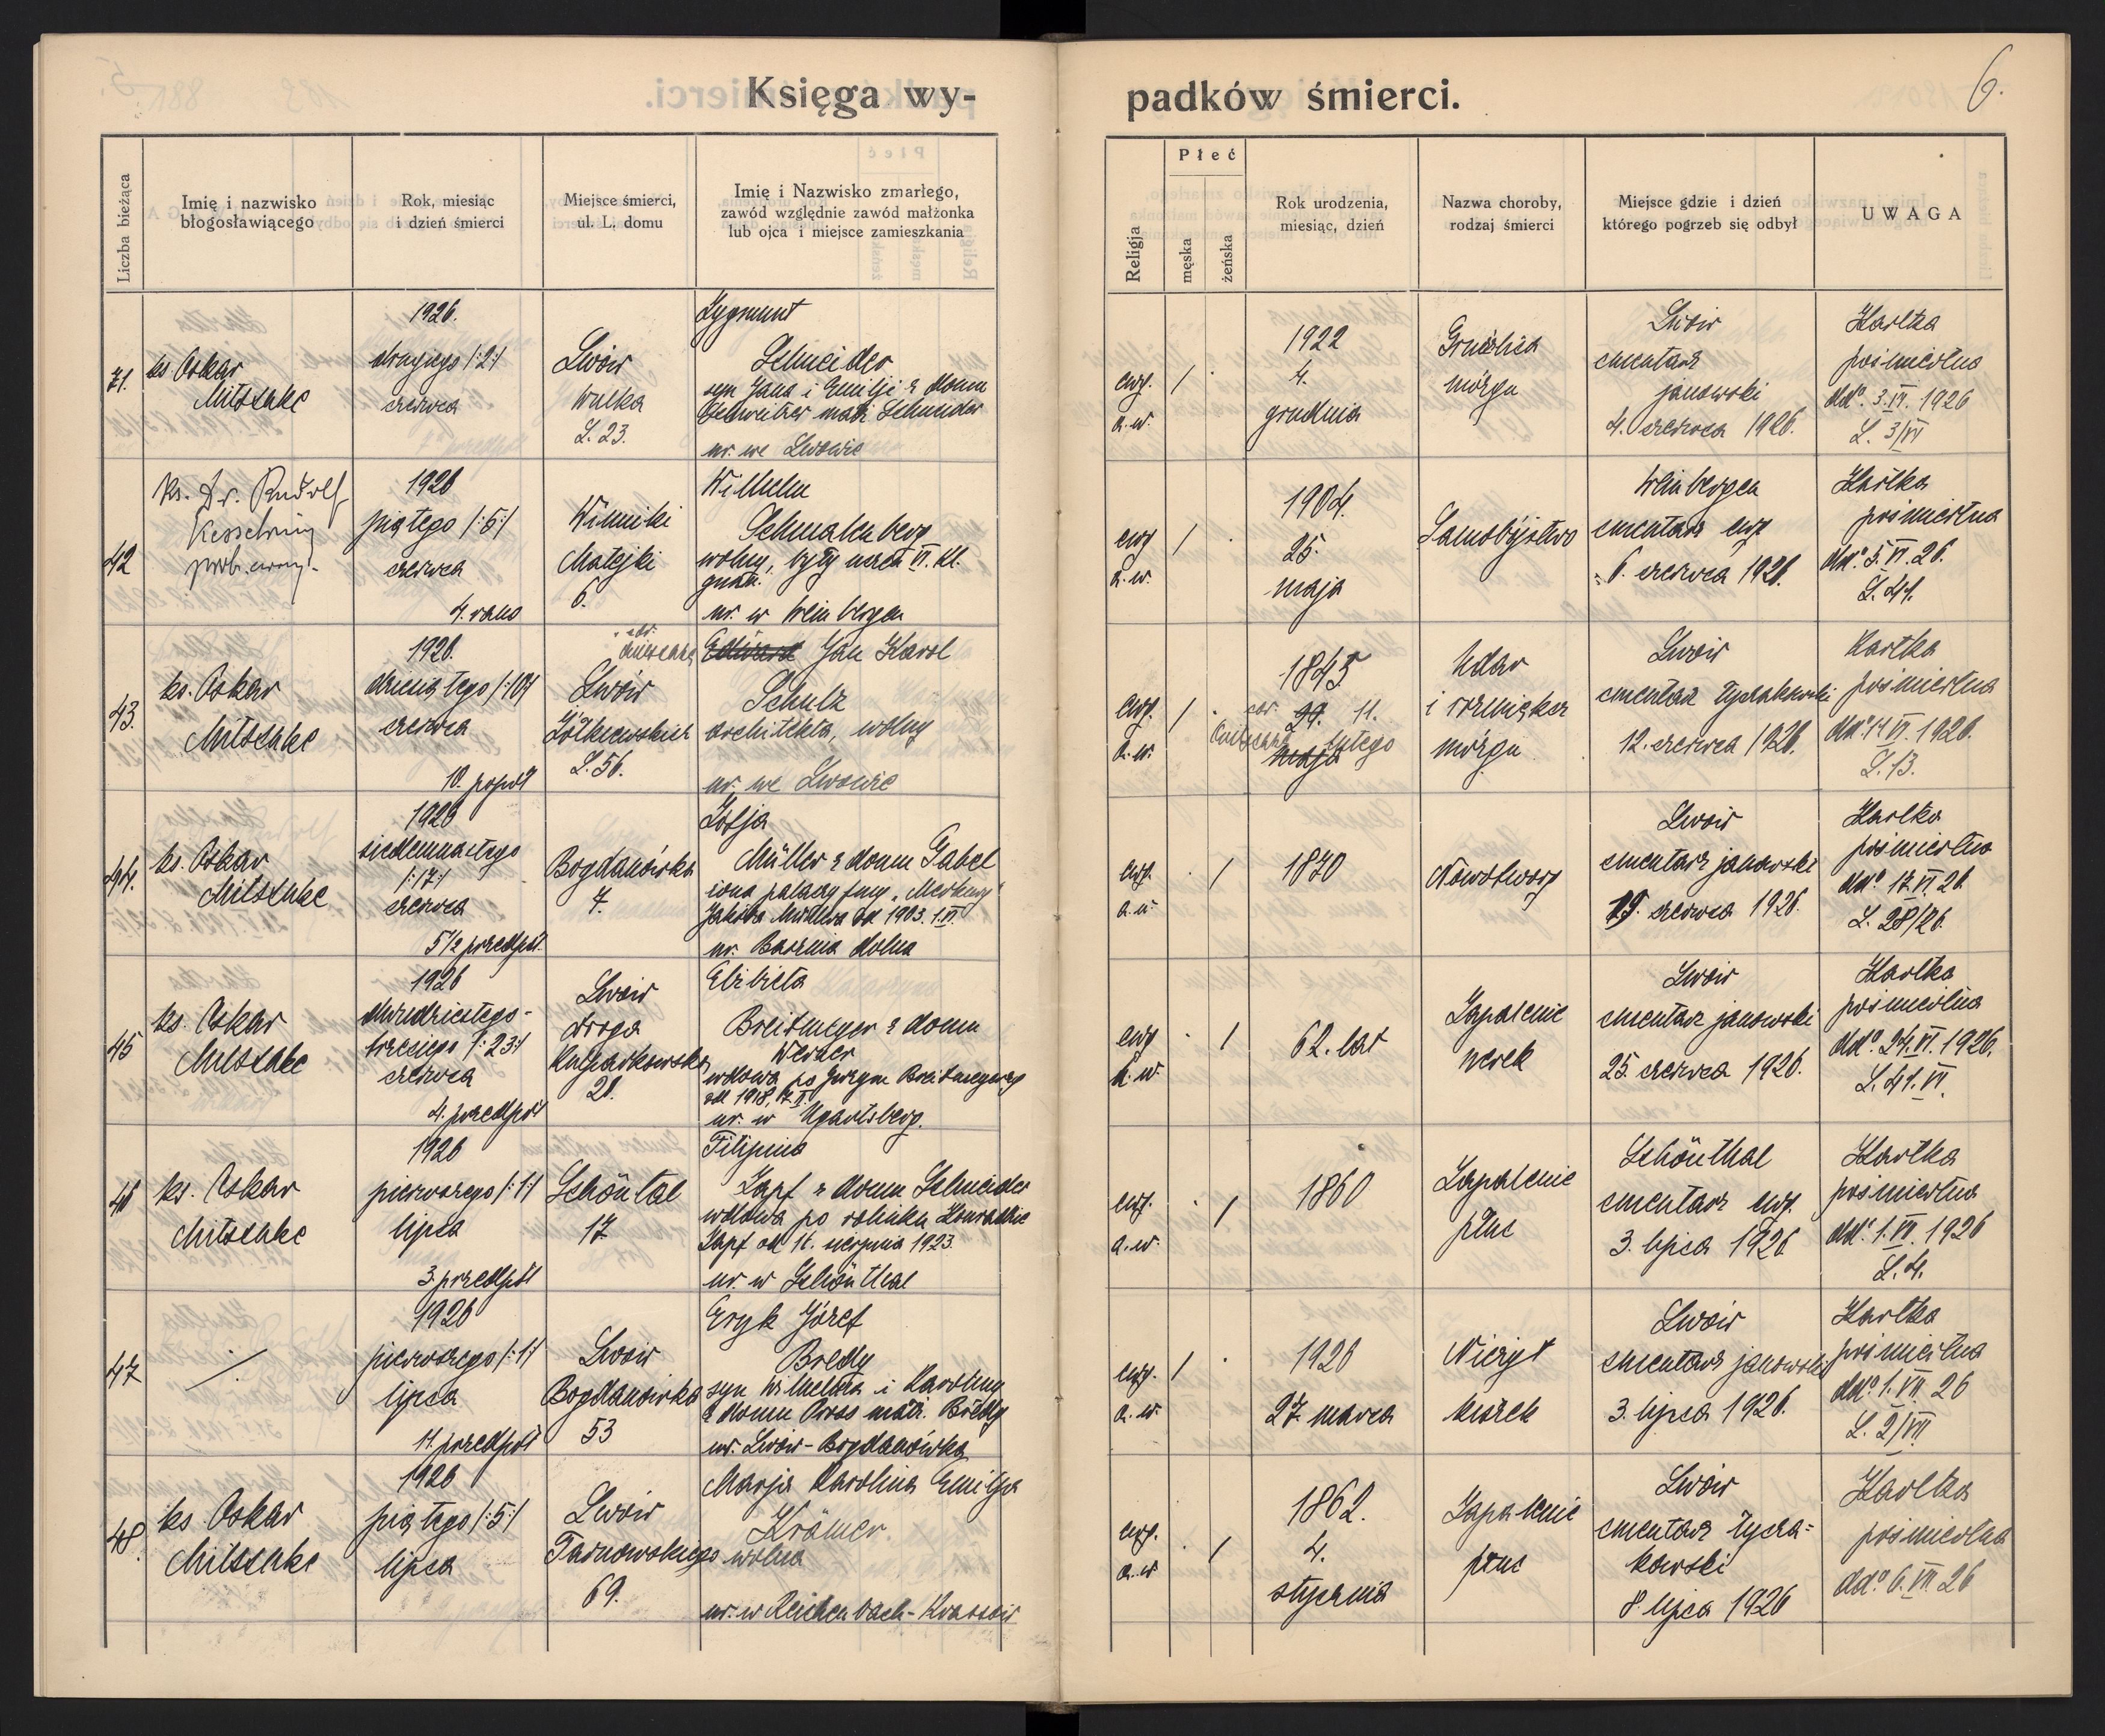 Księga wy-
padków śmierci.
6.
Liczba bieżąca
Imię i nazwisko
błogosławiącego
Rok, miesiąc
i dzień śmierci
Miejsce śmierci,
ul. L. domu
Imię i Nazwisko zmarłego,
zawód względnie zawód małżonka
lub ojca i miejsce zamieszkania
Religja
Płeć
męska
żeńska
Rok urodzenia,
miesiąc, dzień
Nazwa choroby,
rodzaj śmierci
Miejsce gdzie i dzień
którego pogrzeb się odbył
UWAGA
41.
ks Oskar
Mitschke
1926.
drugiego /:2:/
czerwca
Lwów
Wulka
L. 23.
Zygmunt
Schneider
syn Jana i Emilji z domu
Schweitzer małż. Schneider
ur. we Lwowie
ewg.
a. w.
/
1922
4.
grudnia
Gruźlica
mózgu
Lwów
cmentarz
janowski
4. czerwca 1926.
Kartka
pośmiertna
ddº. 3.VI. 1926
L. 3/VI
42
ks. Dr. Rudolf
Kesselring
1926
piątego /:5:/
czerwca
4. rano
Winniki
Matejki
6.
Wilhelm
Schmalenberg
wolny, były uczeń VI. kl.
gimn.
ur. w Weinbergen
ewg
a. w.
/
1904.
25.
maja
Samobójstwo
Weinbergen
cmentarz ewg
6. czerwca 1926.
Kartka
pośmiertna
ddº. 5.VI.26.
L. 41.
43.
ks. Oskar
Mitschke
1926.
dziesiątego /:10:/
czerwca
10. popoł
Lwów
Żółkiewskich
L. 56.
Edward Jan Karol
Schulz
architekta, wolny
ur. we Lwowie
ewg.
a. w.
/
1845
11.
lutego
maja
Udar
i rozmiękcz
mózgu
Lwów
cmentarz Łyczakowski
12. czerwca 1926.
Kartka
pośmiertna
VI. 1926.
L. 13.
44.
ks. Oskar
Mitschke
1926
siedemnastego
/:17:/
czerwca
5 1/2 przedpoł.
Bogdanówka
7.
Zofja
Müller z domu Gabel
żona
Jakóba Müllera od 1903. 1.VI.
ur. Basznia dolna
ewg.
a. w.
/
1870
Nowotwory
Lwów
cmentarz janowski
19. czerwca 1926.
Kartka
pośmiertna
ddº. 17.VI 26
L. 28/26.
45
ks. Oskar
Mitschke
1926
dwudziestego-
trzeciego /:23:/
czerwca
4. przedpoł
Lwów
droga
Kulparkowska
21.
Elżbieta
Breitmeyer z domu
Werner
wdowa po Jerzym Breitmeyerze
ur. w Ugartsberg.
ewg
a. w.
/
62. lat
Zapalenie
nerek
Lwów
cmentarz janowski
25. czerwca 1926.
Kartka
pośmiertna
ddº. 24.VI. 1926.
L. 41.VI.
46
ks. Oskar
Mitschke
1926
pierwszego /:1:/
lipca
3. przedpół
Schöntal
17
Filipina
Zapf z domu Schneider
wdowa po rolniku Konradzie
Zapf od 16. sierpnia 1923.
ur. w Schönthal
ewg.
a. w.
/
1860
Zapalenie
płuc
Schönthal
cmentarz ewg.
3. lipca 1926
Kartka
pośmiertna
ddº. 1.VII. 1926
L. 4.
47
/.
1926
pierwszego /:1:/
lipca
11. przedpoł
Lwów
Bogdanówka
53
Eryk Józef
Bredy
syn Wilhelma i Karoliny
z domu Pross małż. Bredy
ur. Lwów-Bogdanówka
ewg.
a. w.
/
1926
27. marca
Nieżyt
kiszek
Lwów
cmentarz janowski
3. lipca 1926.
Kartka
pośmiertna
ddº. 1.VII. 26
L. 2/VII
48.
ks. Oskar
Mitschke
1926
piątego /:5:/
lipca
Lwów
Tarnowskiego
69.
Marja Karolina Emilja
Krämer.
wolna
ur. w Reichenbach-Krassów
ewg.
a. w
/
1862.
4.
stycznia
Zapalenie
płuc
Lwów
cmentarz Łycza=
kowski
8. lipca 1926
Kartka
pośmiertna
ddº 6.VII 26